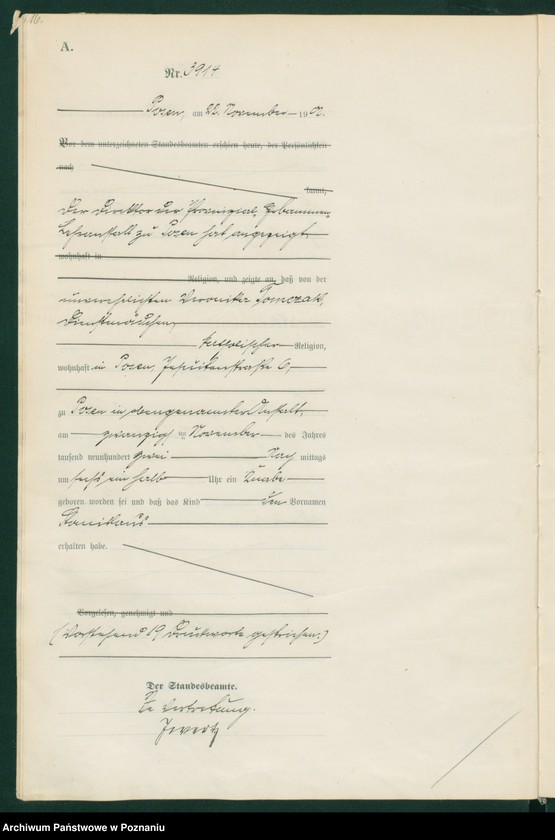 16.
A.
Nr. 3914
Posen, am 22. November 1902.
Vor dem unterzeichneten Standesbeamten erschien heute, der Persönlichkeit
nach
kannt,
Der Direktor der Provinzial-Hebammen-
Lehranstalt zu Posen hat angezeigt,
wohnhaft in
Religion, und zeigte an, daß von der
unverehelichten Veronika Tomczak,
Dienstmädchen,
katholischer Religion,
wohnhaft in Posen, Jesuitenstraße 6,
zu Posen in obengenannter Anstalt,
am zwanzigsten November des Jahres
tausend neunhundert zwei Nachmittags
um sechs ein halb Uhr ein Knabe
geboren worden sei und daß das Kind den Vornamen
Stanislaus
erhalten habe.
Vorgelesen, genehmigt und
(Vorstehend 19 Druckworte gestrichen.)
Der Standesbeamte.
In Vertretung.
Archiwum Państwowe w Poznaniu